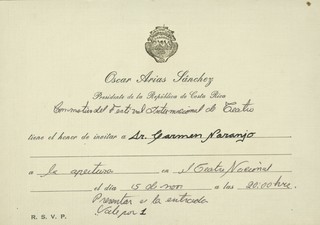 Oscar Arias Sánchez
Presidente de la República de Costa Rica
Con motivo del Festival Internacional de Teatro
tiene el honor de invitar a Dr. Carmen Naranjo
a la apertura en el Teatro Nacional
el día 15 de nov a las 20:00 hrs.
Presentar a la entrada
R. S. V. P. Vale por 1